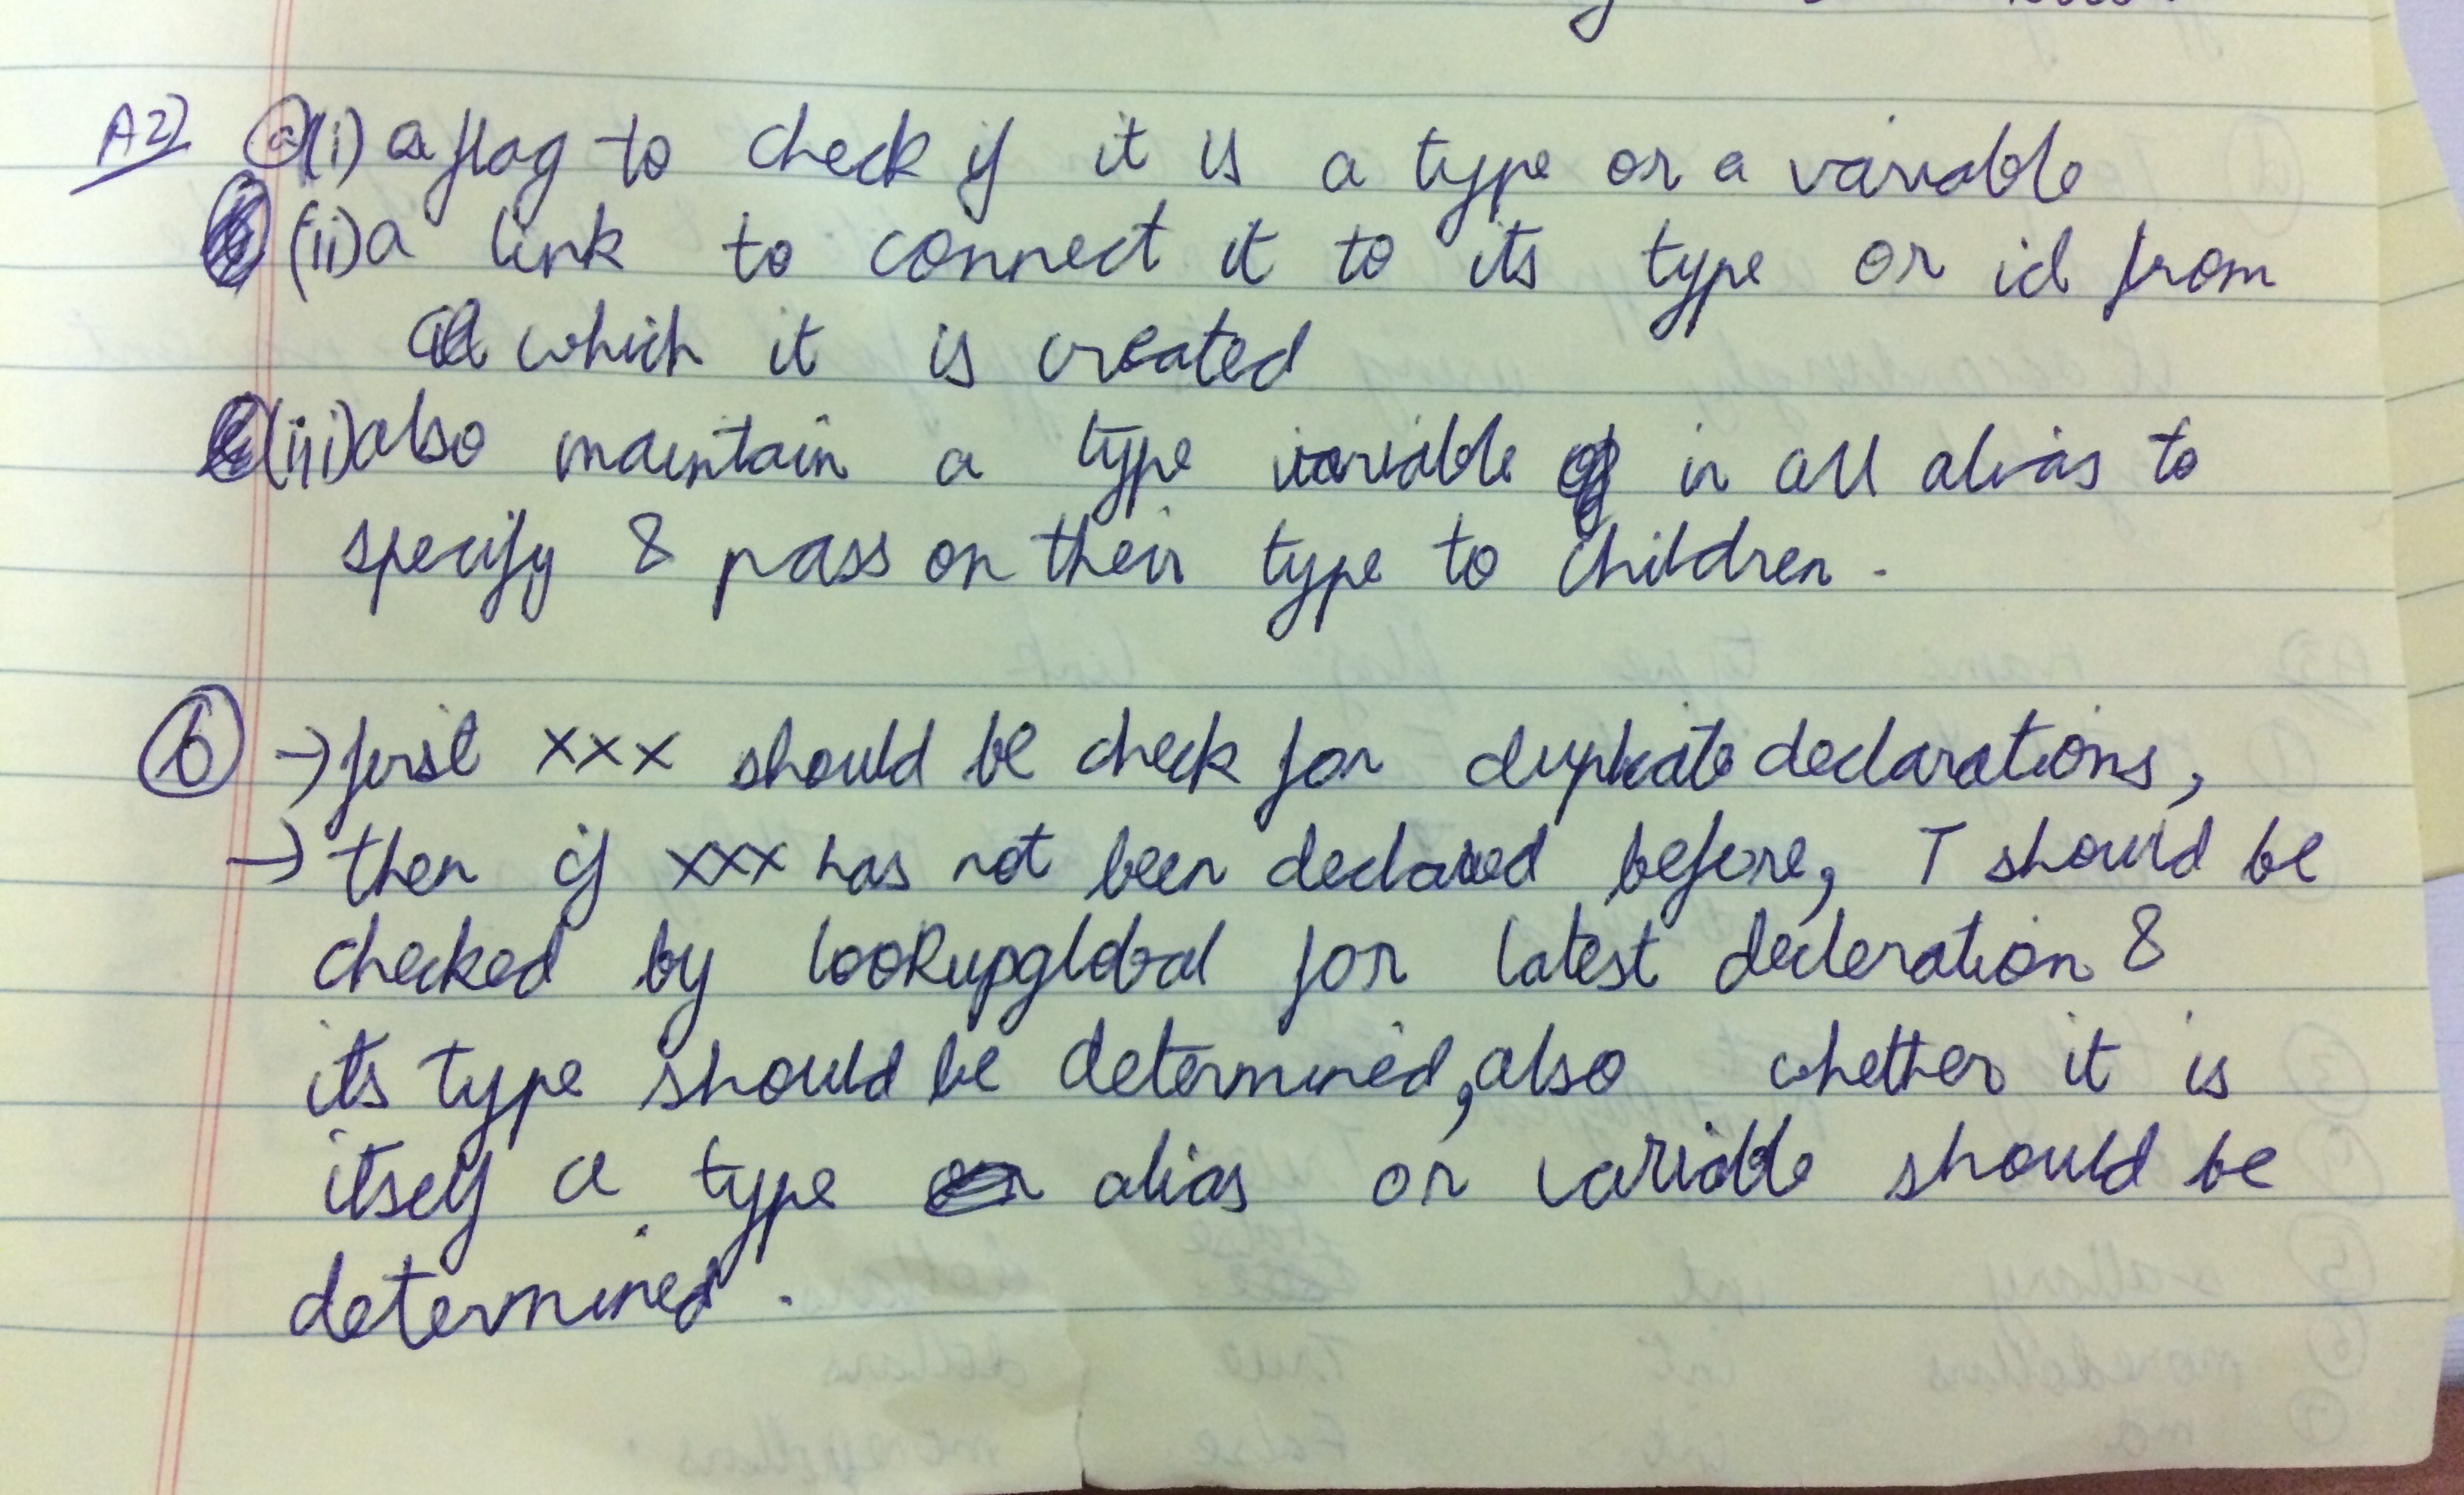 A2) (a)(i) a flag to check if it is a type or a variable
(ii) a link to connect it to its type or id from
which it is created
(iii) also maintain a type variable in all alias to
specify & pass on their type to children.
(b) → first xxx should be check for duplicate declarations,
→ then if xxx has not been declared before, T should be
checked by lookupglobal for latest decleration &
its type should be determined, also whether it is
itself a type alias or variable should be
determined.